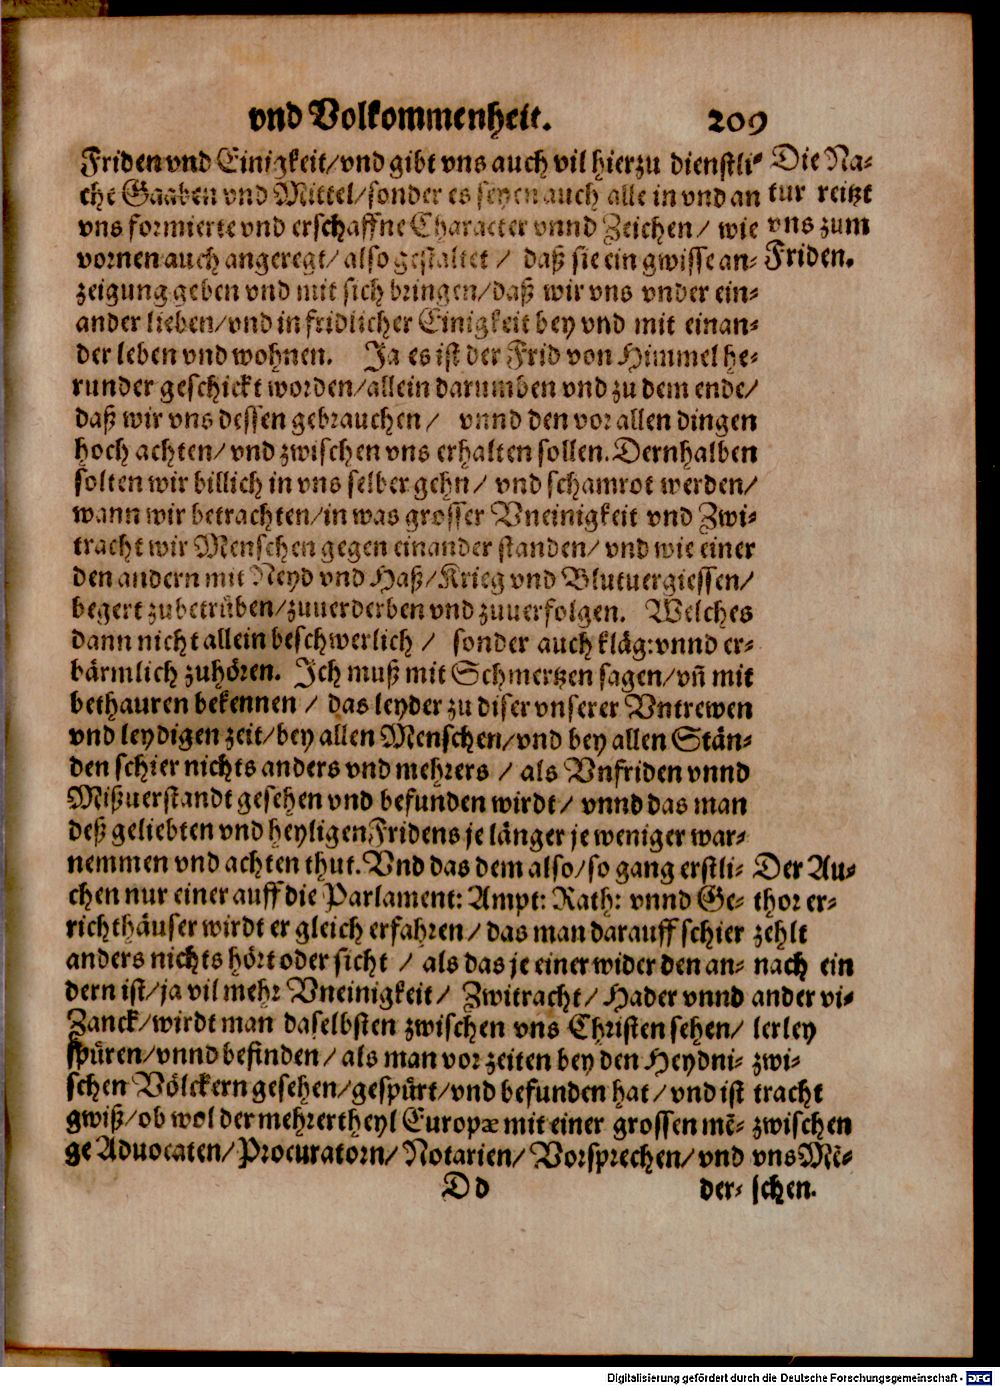 vnd Volkommenheit. 209
Friden vnd Einigkeit/vnd gibt vns auch vil hierzu dienstli-
che Gaaben vnd Mittel/sonder es seyen auch alle in vnd an
vns formierte vnd erschaffne Character vnnd Zeichen/ wie
vornen auch angeregt/also gestaltet / daß sie ein gwisse an-
zeigung geben vnd mit sich bringen/daß wir vns vnder ein-
ander lieben/vnd in fridlicher Einigkeit bey vnd mit einan-
der leben vnd wohnen. Ja es ist der Frid von Himmel he-
runder geschickt worden/allein darumben vnd zu dem ende/
daß wir vns dessen gebrauchen/ vnnd den vor allen dingen
hoch achten/vnd zwischen vns erhalten sollen. Dernhalben
solten wir billich in vns selber gehn/ vnd schamrot werden/
wann wir betrachten/in was grosser Vneinigkeit vnd Zwi-
tracht wir Menschen gegen einander standen/ vnd wie einer
den andern mit Neyd vnd Haß/Krieg vnd Blutuergiessen/
begert zubetrüben/zuuerderben vnd zuuerfolgen. Welches
dann nicht allein beschwerlich / sonder auch kläg: vnnd er-
bärmlich zuhören. Ich muß mit Schmertzen sagen/vñ mit
bethauren bekennen / das leyder zu diser vnserer Vntrewen
vnd leydigen zeit/bey allen Menschen/vnd bey allen Stän-
den schier nichts anders vnd mehrers / als Vnfriden vnnd
Mißuerstandt gesehen vnd befunden wirdt/ vnnd das man
deß geliebten vnd heyligen Fridens je länger je weniger war-
nemmen vnd achten thut. Vnd das dem also/so gang erstli-
chen nur einer auff die Parlament: Ampt: Rath: vnnd Ge-
richthäuser wirdt er gleich erfahren/das man darauff schier
anders nichts hört oder sicht / als das je einer wider den an-
dern ist/ja vil mehr Vneinigkeit/ Zwitracht/ Hader vnnd
Zanck/wirdt man daselbsten zwischen vns Christen sehen/
spüren/vnnd befinden/als man vor zeiten bey den Heydni-
schen Völckern gesehen/gespürt/vnd befunden hat/vnd ist
gwiß/ob wol der mehrertheyl Europæ mit einer grossen mē-
ge Aduocaten/Procuratorn/Notarien/Vorsprechen/vnd
Dd der-
Die Na-
tur reitzt
vns zum
Friden.
Der Au-
thor er-
zehlt
nach ein
ander vi-
lerley
zwi-
tracht
zwischen
vns Mē-
schen.
Digitalisierung gefördert durch die Deutsche Forschungsgemeinschaft - DFG